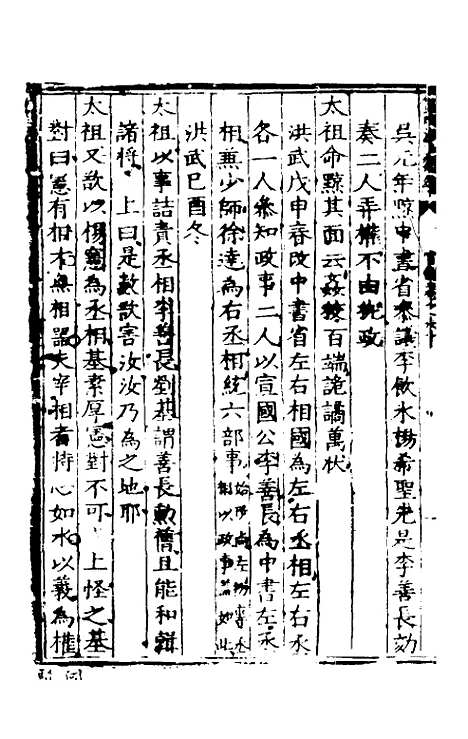 吳元年黥中書省參議李飲氷楊希聖先是李善長劾
奏二人弄權不由執政
太祖命黥其面云姦狡百端詭譎萬狀
洪武戊申春改中書省左右相國為左右丞相左右丞
各一人參知政事二人以宣國公李善長為中書左丞
相兼少師徐達為右丞相統六部事
洪武己酉冬
太祖以事詰責丞相李善長劉基謂善長勳舊且能和輯
諸將 上曰是數欲害汝汝乃為之地耶
太祖又欲以楊憲為丞相基素厚憲對不可 上怪之基
對曰憲有相才無相器夫宰相者持心如水以義為權